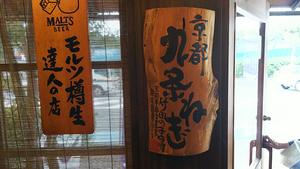 MALTS
BEER
モルツ樽生
達人の店
京都
九条ねぎ